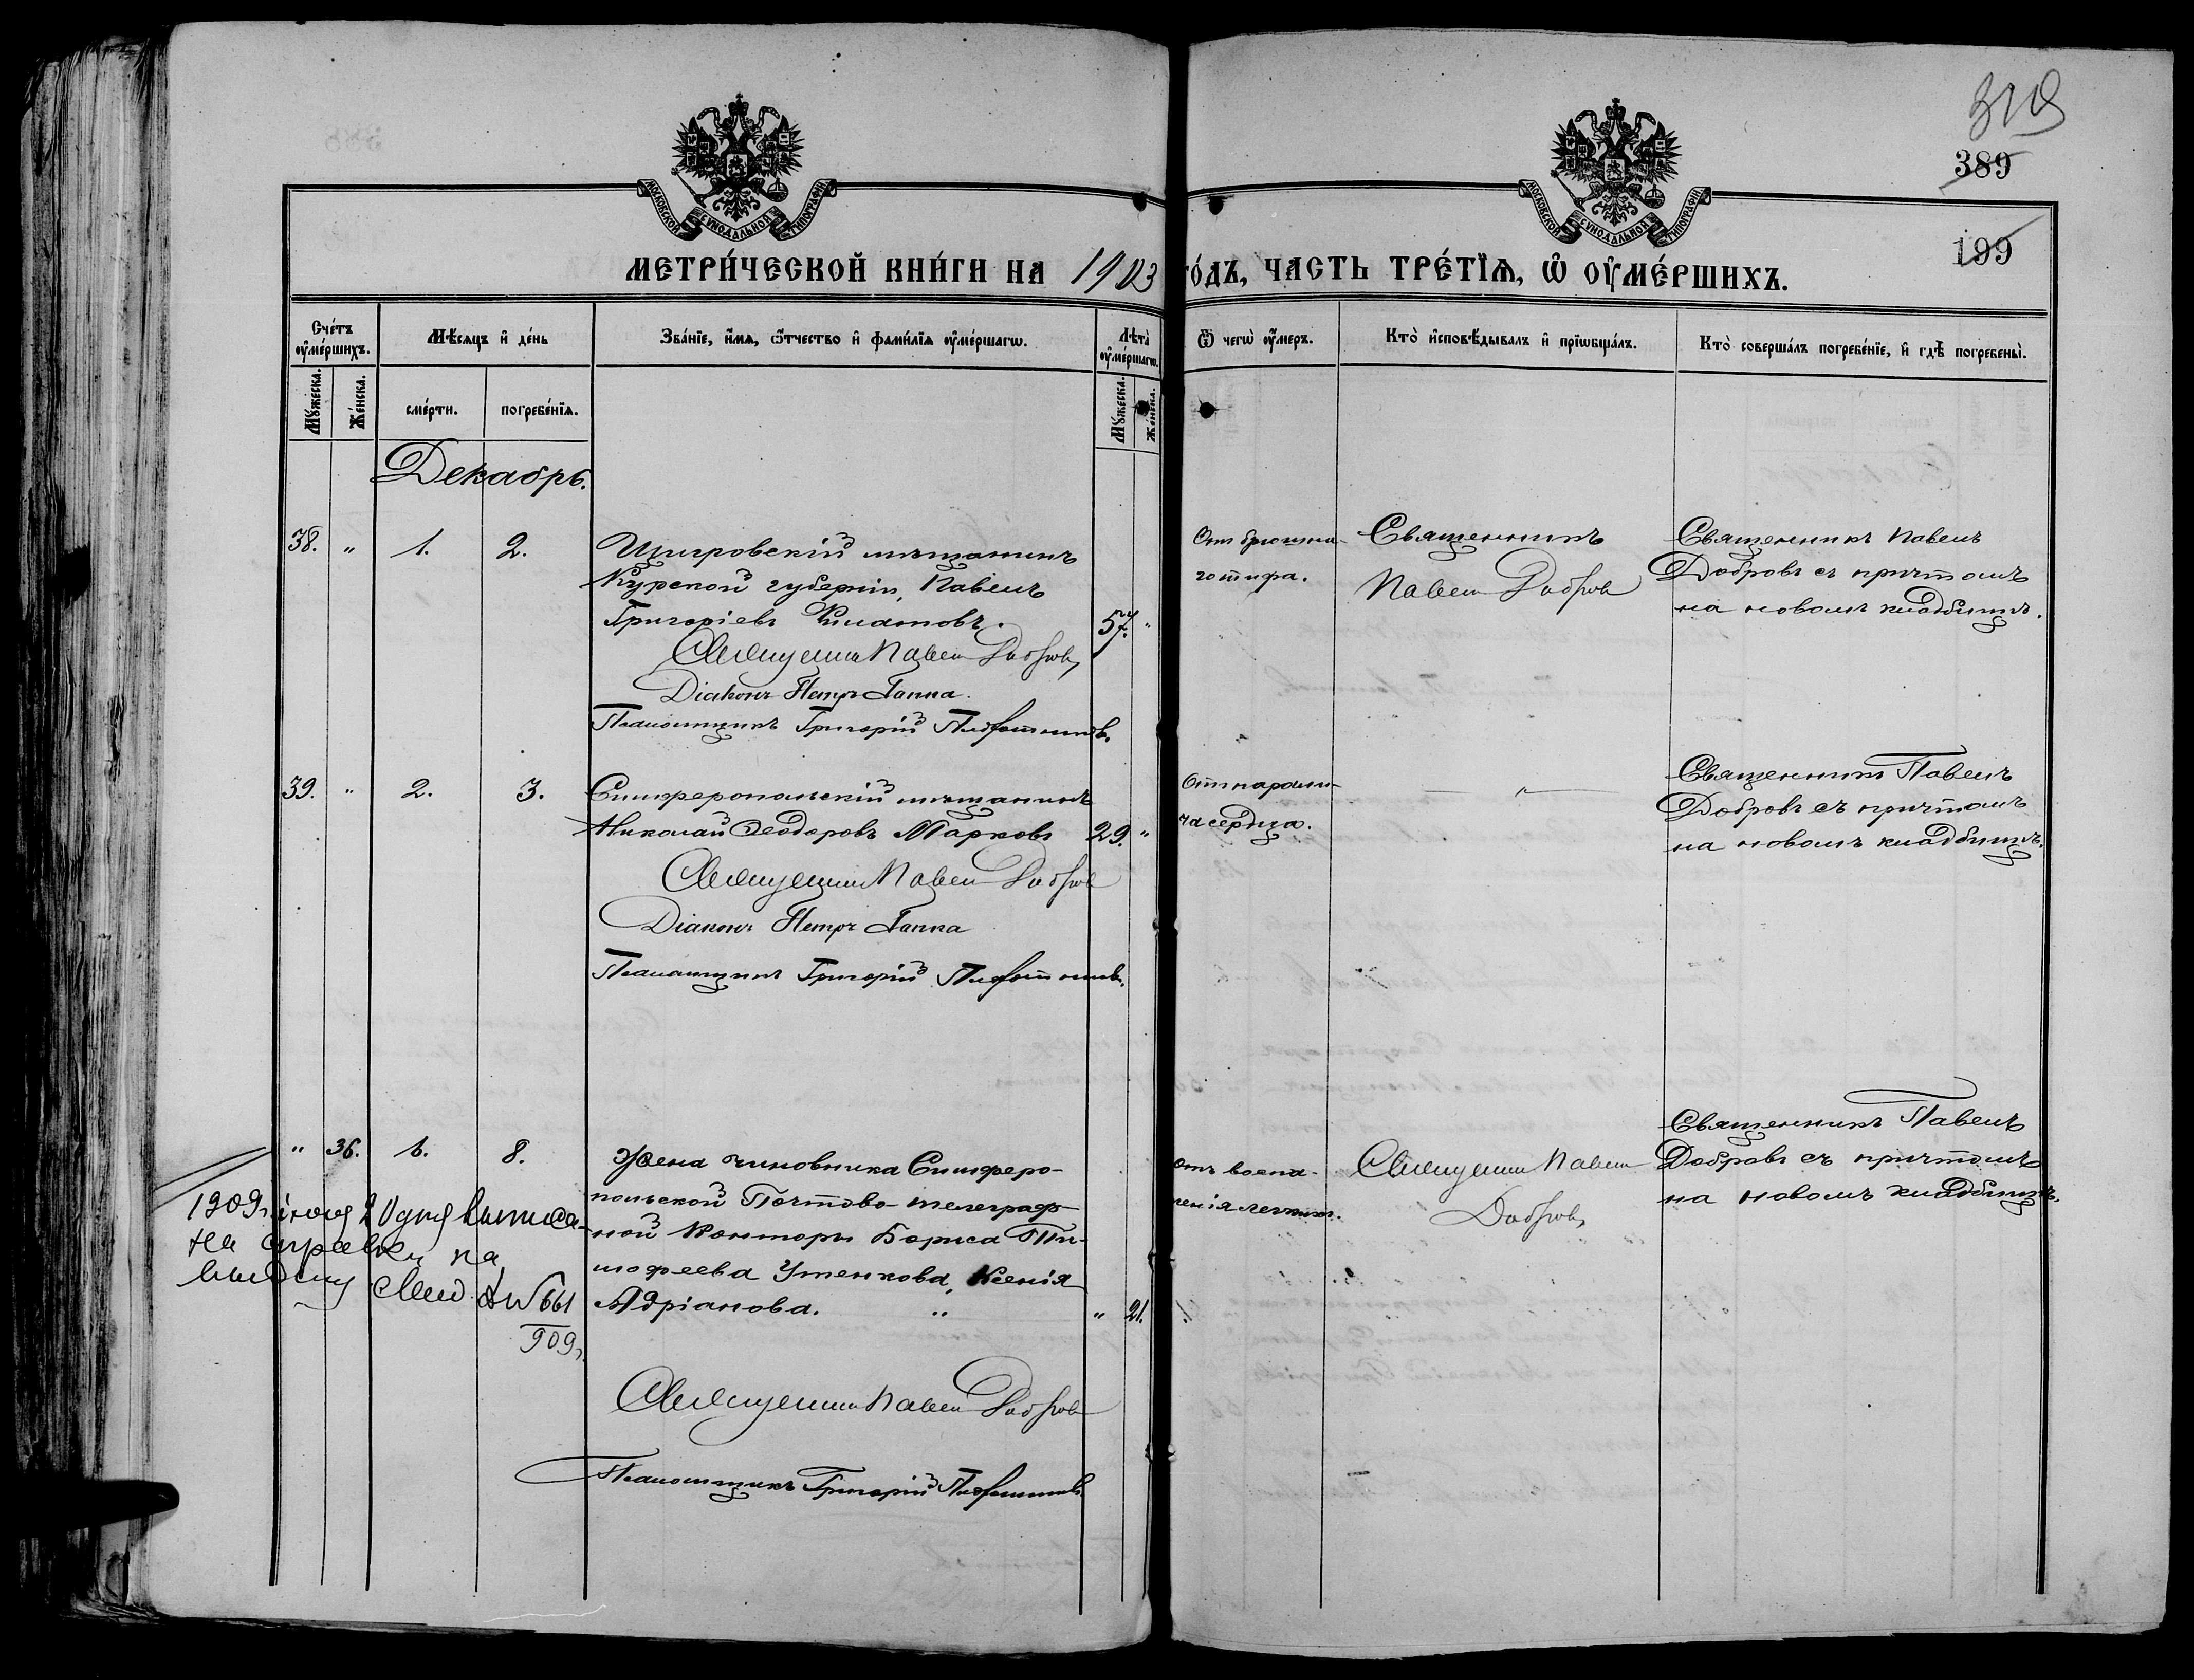 319
389
199
МОСКОВСКОЙ СѴНОДАЛЬНОЙ ТИПОГРАФІИ
МОСКОВСКОЙ СѴНОДАЛЬНОЙ ТИПОГРАФІИ
МЕТРИ́ЧЕСКОЙ КНИ́ГИ НА 1903 ГО́ДЪ, ЧАСТЬ ТРЕ́ТЇѦ, Ѡ ОУМЕ́РШИХЪ.
Сче́тъ оуме́ршихъ.
Мѣ́сяцъ и де́нь
Зва́нїе, и́мѧ, ѻ́тчество и фами́лїѧ оуме́ршагѡ.
Лѣта̀ оуме́ршагѡ.
Ѿ чегѡ̀ оу́меръ.
Кто̀ и҆сповѣ́дывалъ и҆ прїѡбща́лъ.
Кто̀ соверша́лъ погребе́нїе, и҆ гдѣ̀ погребены̀.
Мꙋ́жеска.
Же́нска.
сме́рти.
погребе́нїѧ.
Мꙋ́жеска.
Же́нска.
Декабрь.
38. " 1. 2.
Щигровскій мѣщанинъ
Курской губерніи, Павелъ
Григоріевъ Филатовъ. 57. "
Священникъ Павелъ Добровъ
Діаконъ Петръ Ганка.
Псаломщикъ Григорій
Отъ брюшна-
го тифа.
Священникъ
Павелъ Добровъ
Священникъ Павелъ
Добровъ съ причтомъ
на новомъ кладбищѣ.
39. " 2. 3.
Симферопольскій мѣщанинъ
Николай Ѳеодоровъ Марковъ 29. "
Священникъ Павелъ Добровъ
Діаконъ Петръ Ганка
Псаломщикъ Григорій
Отъ парали-
ча сердца.
"
Священникъ Павелъ
Добровъ съ причтомъ
на новомъ кладбищѣ.
" 36. 6. 8.
Жена чиновника Симферо-
польской Почтово-телеграф-
ной Конторы Бориса Ти-
мофеева Утенкова, Ксенія
Адріанова. " " 21.
Священникъ Павелъ Добровъ
Псаломщикъ Григорій
отъ воспа-
ленія легкихъ.
Священникъ Павелъ
Добровъ
Священникъ Павелъ
Добровъ съ причтомъ
на новомъ кладбищѣ.
1909 г. іюня 2 дня выписа-
на справка на
№ 661
909 г.